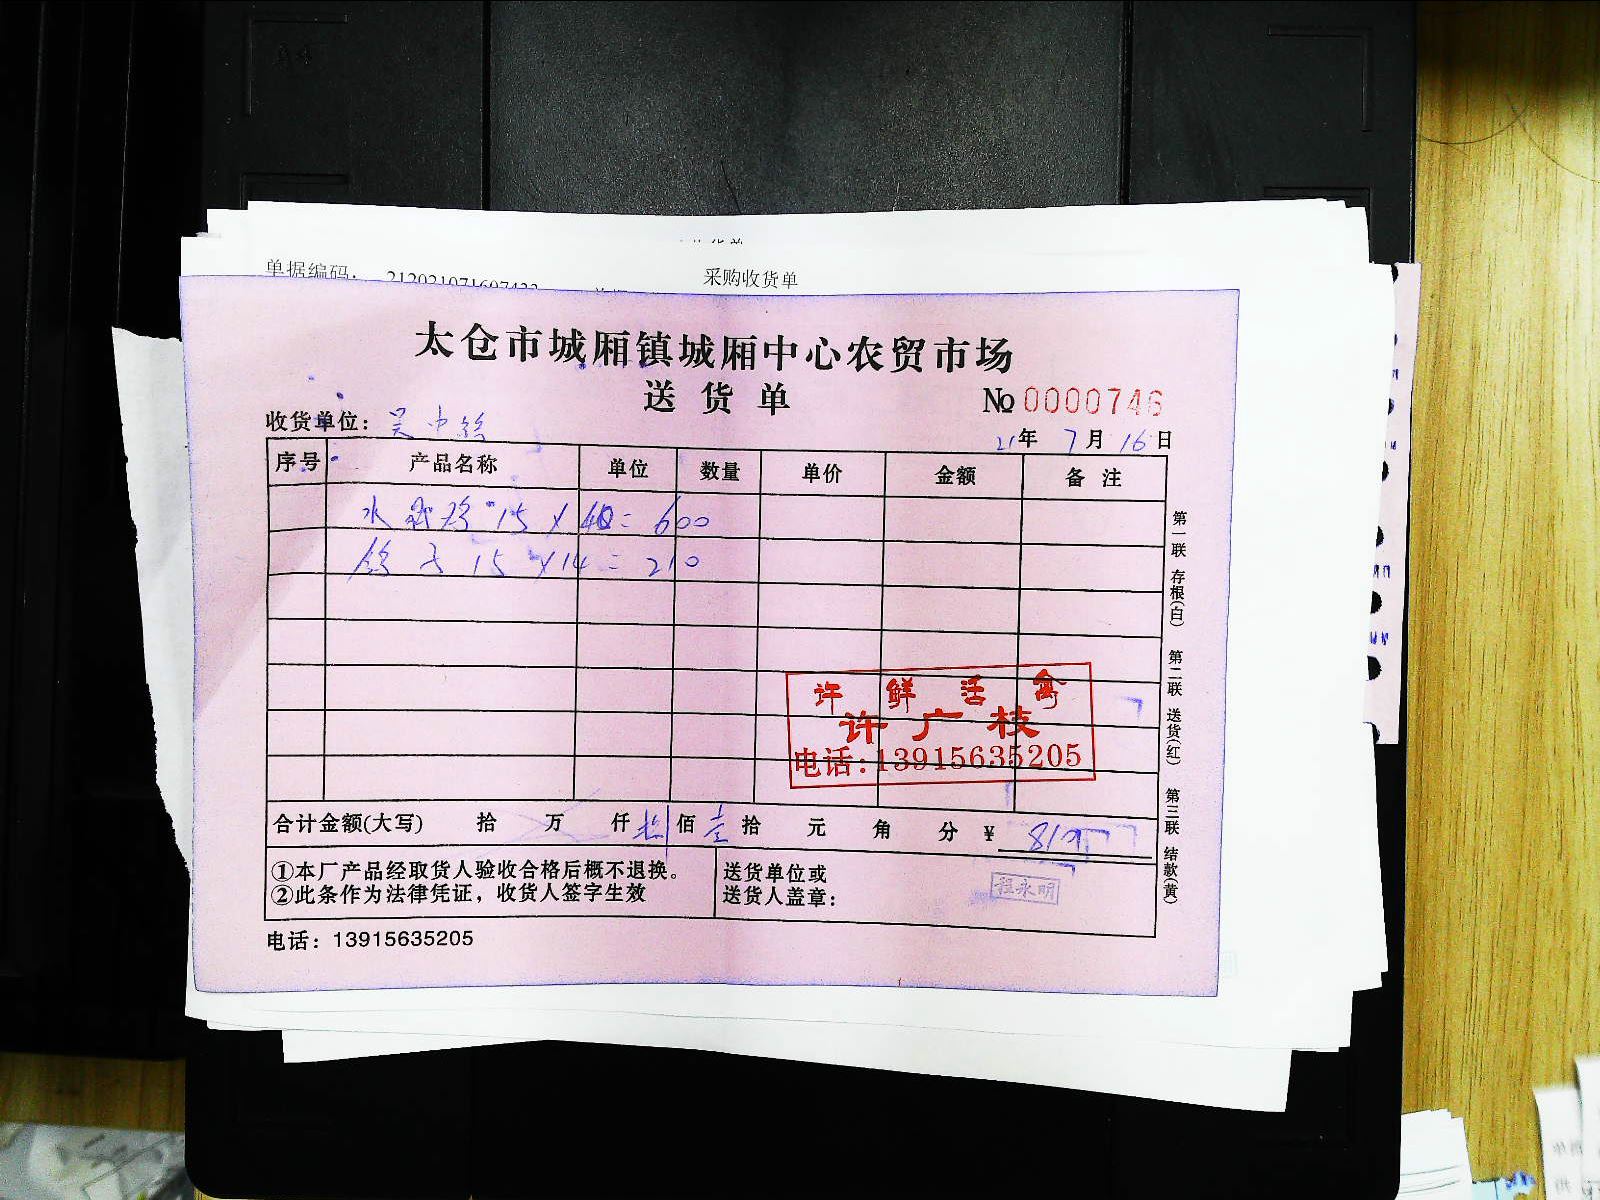 采购收货单
单据编码：
太仓市城厢镇城厢中心农贸市场
送货单
№ 0000746
收货单位：吴中
21年 7月 16日
序号 产品名称 单位 数量 单价 金额 备注
水 15 × 40 = 600
鸽子 15 × 14 = 210
许鲜活禽
许广枝
电话：13915635205
合计金额(大写) 拾 万 仟 捌佰 壹拾 元 角 分 ¥ 810
①本厂产品经取货人验收合格后概不退换。
②此条作为法律凭证，收货人签字生效
送货单位或
送货人盖章：
程永明
电话：13915635205
第一联 存根(白) 第二联 送货(红) 第三联 结款(黄)